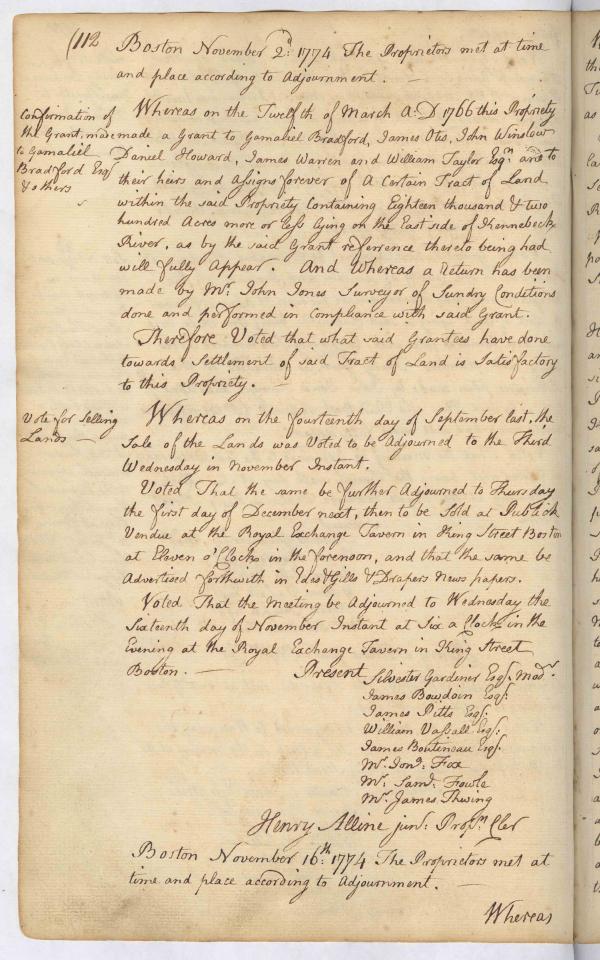 (112
Boston November 2d: 1774 The Proprietors met at time
and place according to Adjournment. —
Confirmation of
the Grant made
to Gamaliel
Bradford Esqr
& others
Whereas on the Twelfth of March A:D 1766 this Propriety
made a Grant to Gamaliel Bradford, James Otis, John Winslow
Daniel Howard, James Warren and William Taylor Esqrs and to
their heirs and Assigns forever of A Certain Tract of Land
within the said Propriety Containing Eighteen thousand & two
hundred Acres more or less lying on the East side of Kennebeck
River, as by the said Grant refferrence thereto being had
will fully Appear. And Whereas a Return has been
made by Mr. John Jones Surveyor of Sundry Conditions
done and performed in Compliance with said Grant.
Therefore Voted that what said Grantees have done
towards Settlement of said Tract of Land is Satisfactory
to this Propriety. —
Vote for Selling
Lands —
Whereas on the fourteenth day of September last, the
Sale of the Lands was Voted to be Adjourned to the Third
Wednesday in November Instant.
Voted That the same be further Adjourned to Thursday
the first day of December next, then to be Sold at Publick
Vendue at the Royal Exchange Tavern in King Street Boston
at Eleven o'Clock in the forenoon, and that the same be
Advertised forthwith in Edes & Gills & Drapers News papers.
Voted That the Meeting be Adjourned to Wednesday the
Sixteenth day of November Instant at Six a Clock in the
Evening at the Royal Exchange Tavern in King Street
Boston. — Present Silvester Gardiner Esqr. Modr.
James Bowdoin Esqr.
James Pitts Esqr.
William Vassall Esqr.
James Boutineau Esqr.
Mr. Jona: Fox
Mr. Saml: Fowle
Mr. James Thwing
Henry Alline junr: Proprs Cler
Boston November 16th: 1774 The Proprietors met at
time and place according to Adjournment. —
Whereas